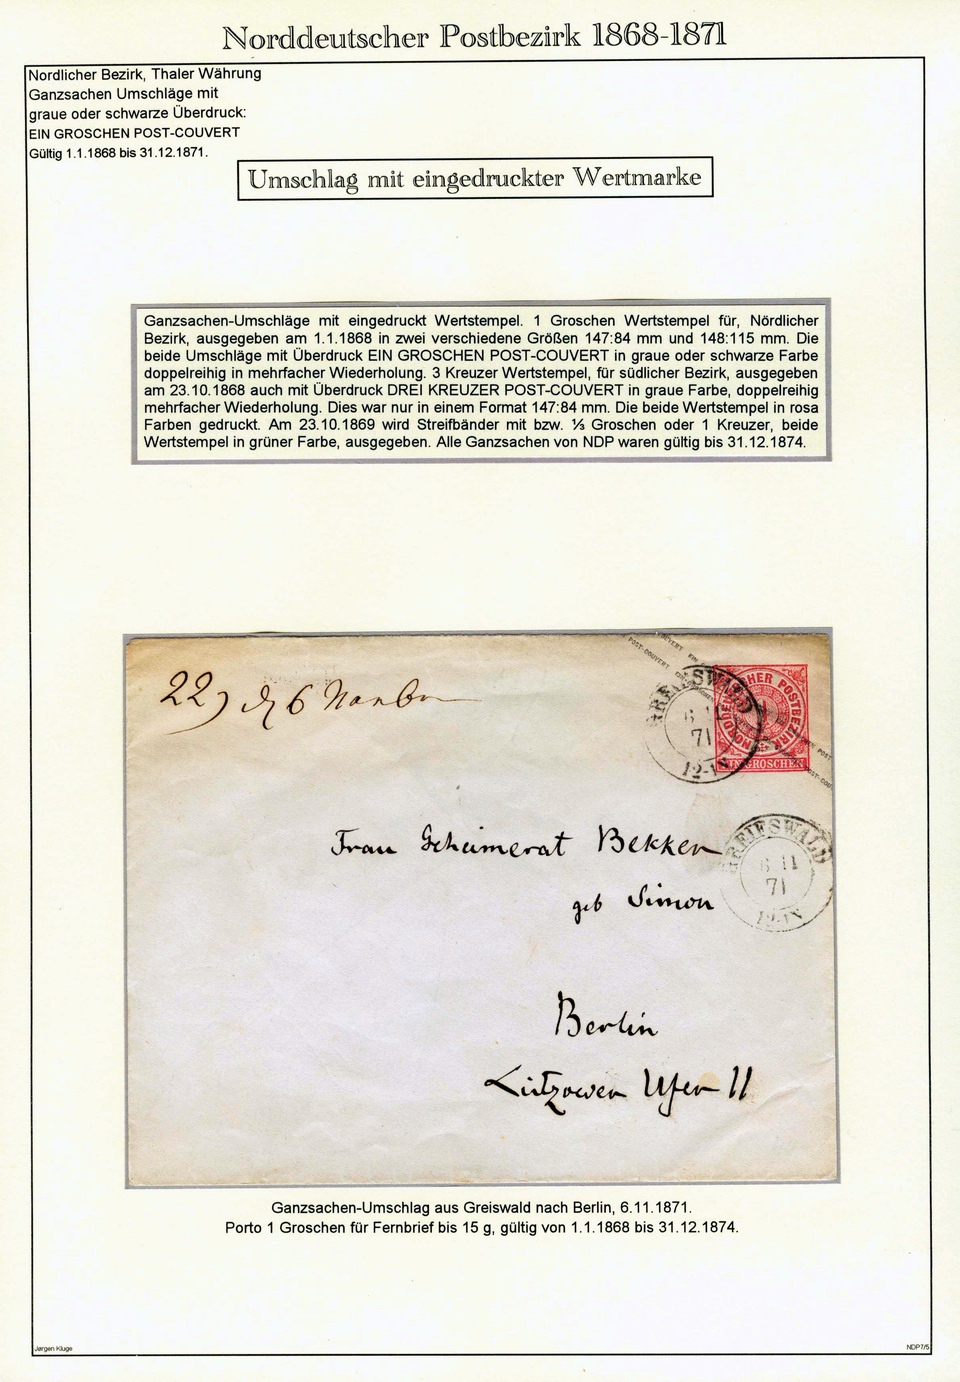 Norddeutscher Postbezirk 1868-1871
Nordlicher Bezirk, Thaler Währung
Ganzsachen Umschläge mit
graue oder schwarze Überdruck:
EIN GROSCHEN POST-COUVERT
Gültig 1.1.1868 bis 31.12.1871.
Umschlag mit eingedruckter Wertmarke
Ganzsachen-Umschläge mit eingedruckt Wertstempel. 1 Groschen Wertstempel für, Nördlicher
Bezirk, ausgegeben am 1.1.1868 in zwei verschiedene Größen 147:84 mm und 148:115 mm. Die
beide Umschläge mit Überdruck EIN GROSCHEN POST-COUVERT in graue oder schwarze Farbe
doppelreihig in mehrfacher Wiederholung. 3 Kreuzer Wertstempel, für südlicher Bezirk, ausgegeben
am 23.10.1868 auch mit Überdruck DREI KREUZER POST-COUVERT in graue Farbe, doppelreihig
mehrfacher Wiederholung. Dies war nur in einem Format 147:84 mm. Die beide Wertstempel in rosa
Farben gedruckt. Am 23.10.1869 wird Streifbänder mit bzw. ⅓ Groschen oder 1 Kreuzer, beide
Wertstempel in grüner Farbe, ausgegeben. Alle Ganzsachen von NDP waren gültig bis 31.12.1874.
POST-COUVERT EIN
NORDDEUTSCHER POSTBEZIRK
EIN GROSCHEN
GREIFSWALD
6 11
71
12-1N
22) 6
Frau Geheimerat Bekker
geb Simon
GREIFSWALD
6 11
71
12-1N
Berlin
Lützower Ufer 11
Ganzsachen-Umschlag aus Greiswald nach Berlin, 6.11.1871.
Porto 1 Groschen für Fernbrief bis 15 g, gültig von 1.1.1868 bis 31.12.1874.
Jørgen Kluge
NDP7/5